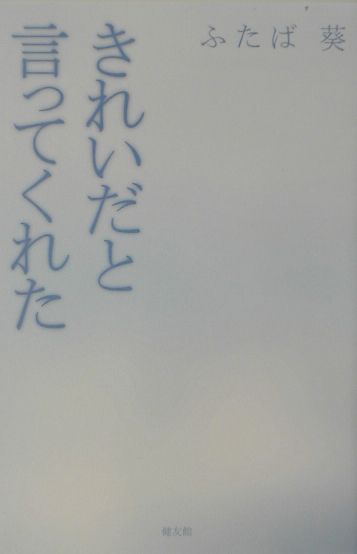 ふたば 葵
きれいだと
言ってくれた
健友館